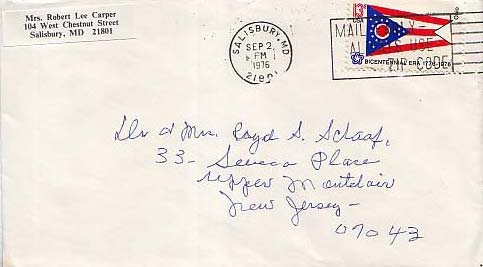 Mrs. Robert Lee Carper
104 West Chestnut Street
Salisbury, MD 21801
SALISBURY, MD
SEP 2
PM
1976
21801
13c
USA
Ohio
MAIL EARLY
U.S. USE
ZIP CODE
BICENTENNIAL ERA 1776-1976
Dr & Mrs. Lloyd S. Schaaf,
33 - Seneca Place
Upper Montclair
New Jersey -
07043